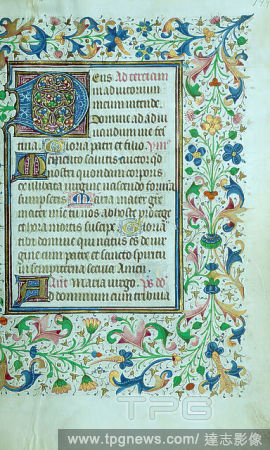 Deus Ad terciam
in adiutorium
meum intende.
Domine ad adiu
uandum me fes
tina. Gloria patri et filio.
Memento salutis auctor qd
nostri quondam corporis
ex illibata virgine nascendo formã
sumpseris. Maria mater gre
mater mie tu nos ab hoste protege
et hora mortis suscipe. Gloria
tibi domine qui natus es de vir
gine cum patre et sancto spiritu
in sempiterna secula. Amen
Ant Maria virgo. Ps
Ad dominum cum tribula
TPG
www.tpgnews.com/達志影像